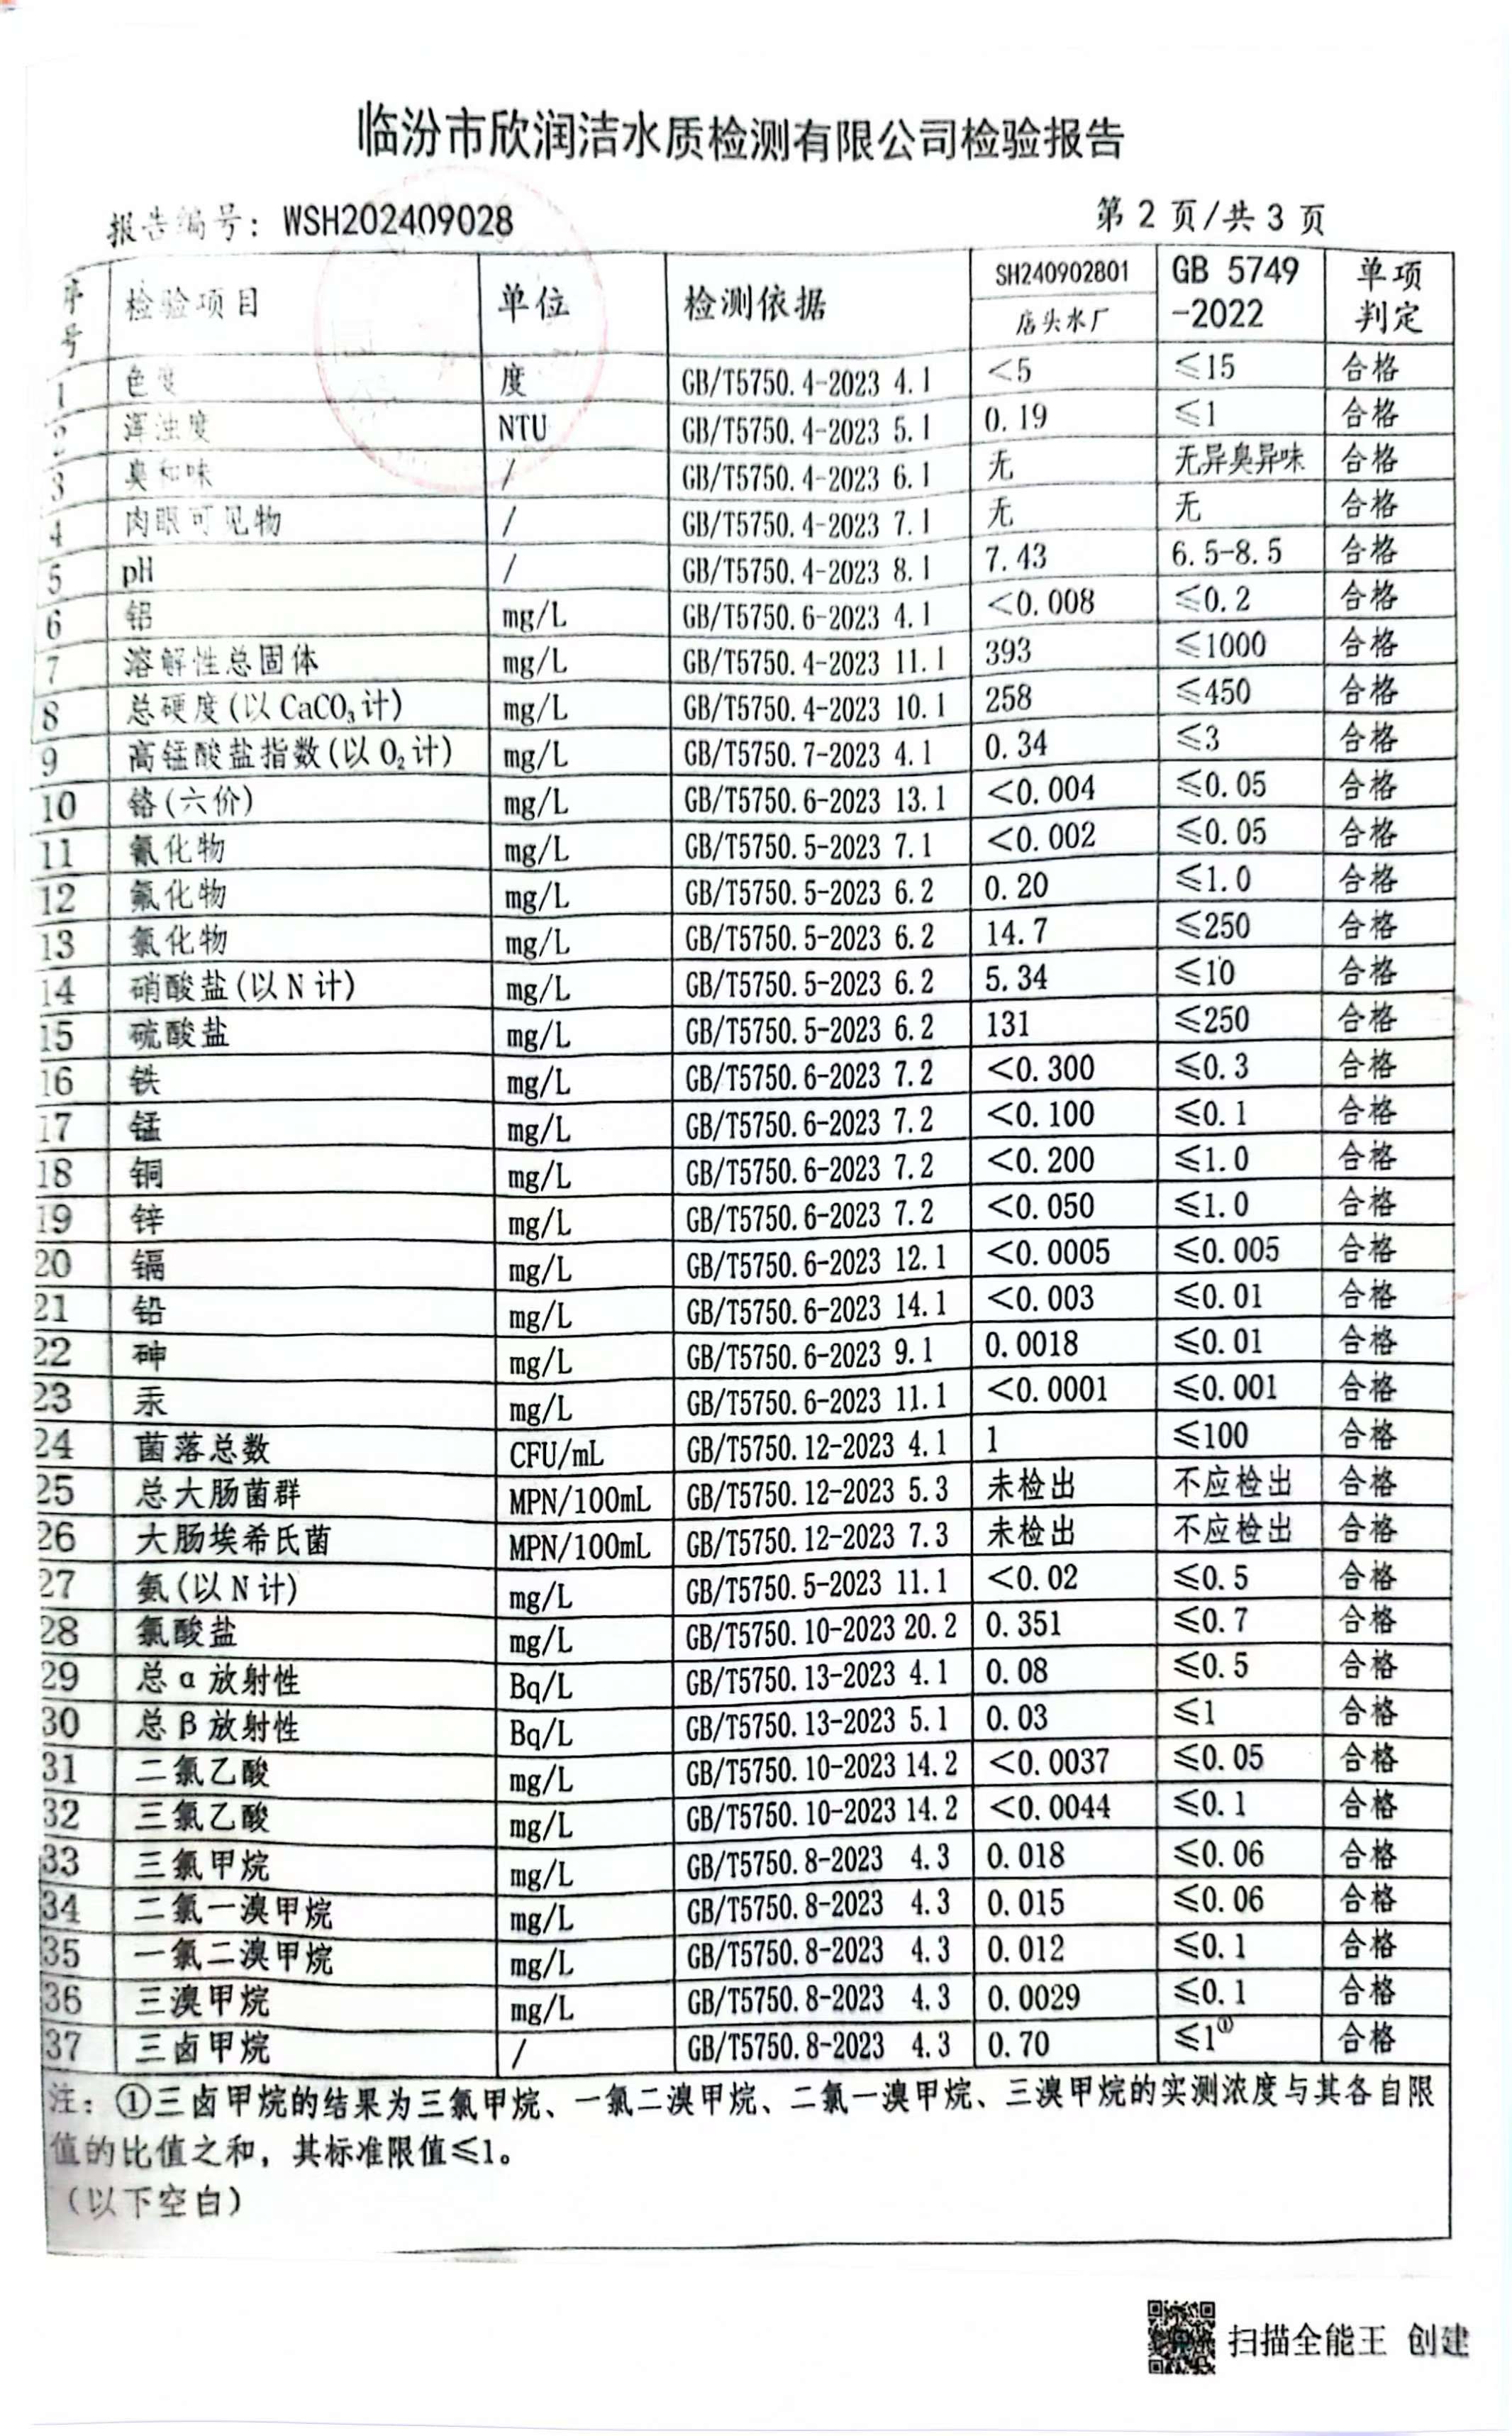 临汾市欣润洁水质检测有限公司检验报告
报告编号：WSH202409028 第 2 页/共 3 页
序号 检验项目 单位 检测依据 SH240902801 店头水厂 GB 5749-2022 单项判定
1 色度 度 GB/T5750.4-2023 4.1 <5 ≤15 合格
2 浑浊度 NTU GB/T5750.4-2023 5.1 0.19 ≤1 合格
3 臭和味 / GB/T5750.4-2023 6.1 无 无异臭异味 合格
4 肉眼可见物 / GB/T5750.4-2023 7.1 无 无 合格
5 pH / GB/T5750.4-2023 8.1 7.43 6.5-8.5 合格
6 铝 mg/L GB/T5750.6-2023 4.1 <0.008 ≤0.2 合格
7 溶解性总固体 mg/L GB/T5750.4-2023 11.1 393 ≤1000 合格
8 总硬度(以 CaCO₃ 计) mg/L GB/T5750.4-2023 10.1 258 ≤450 合格
9 高锰酸盐指数(以 O₂ 计) mg/L GB/T5750.7-2023 4.1 0.34 ≤3 合格
10 铬(六价) mg/L GB/T5750.6-2023 13.1 <0.004 ≤0.05 合格
11 氰化物 mg/L GB/T5750.5-2023 7.1 <0.002 ≤0.05 合格
12 氟化物 mg/L GB/T5750.5-2023 6.2 0.20 ≤1.0 合格
13 氯化物 mg/L GB/T5750.5-2023 6.2 14.7 ≤250 合格
14 硝酸盐(以 N 计) mg/L GB/T5750.5-2023 6.2 5.34 ≤10 合格
15 硫酸盐 mg/L GB/T5750.5-2023 6.2 131 ≤250 合格
16 铁 mg/L GB/T5750.6-2023 7.2 <0.300 ≤0.3 合格
17 锰 mg/L GB/T5750.6-2023 7.2 <0.100 ≤0.1 合格
18 铜 mg/L GB/T5750.6-2023 7.2 <0.200 ≤1.0 合格
19 锌 mg/L GB/T5750.6-2023 7.2 <0.050 ≤1.0 合格
20 镉 mg/L GB/T5750.6-2023 12.1 <0.0005 ≤0.005 合格
21 铅 mg/L GB/T5750.6-2023 14.1 <0.003 ≤0.01 合格
22 砷 mg/L GB/T5750.6-2023 9.1 0.0018 ≤0.01 合格
23 汞 mg/L GB/T5750.6-2023 11.1 <0.0001 ≤0.001 合格
24 菌落总数 CFU/mL GB/T5750.12-2023 4.1 1 ≤100 合格
25 总大肠菌群 MPN/100mL GB/T5750.12-2023 5.3 未检出 不应检出 合格
26 大肠埃希氏菌 MPN/100mL GB/T5750.12-2023 7.3 未检出 不应检出 合格
27 氨(以 N 计) mg/L GB/T5750.5-2023 11.1 <0.02 ≤0.5 合格
28 氯酸盐 mg/L GB/T5750.10-2023 20.2 0.351 ≤0.7 合格
29 总 α 放射性 Bq/L GB/T5750.13-2023 4.1 0.08 ≤0.5 合格
30 总 β 放射性 Bq/L GB/T5750.13-2023 5.1 0.03 ≤1 合格
31 二氯乙酸 mg/L GB/T5750.10-2023 14.2 <0.0037 ≤0.05 合格
32 三氯乙酸 mg/L GB/T5750.10-2023 14.2 <0.0044 ≤0.1 合格
33 三氯甲烷 mg/L GB/T5750.8-2023 4.3 0.018 ≤0.06 合格
34 二氯一溴甲烷 mg/L GB/T5750.8-2023 4.3 0.015 ≤0.06 合格
35 一氯二溴甲烷 mg/L GB/T5750.8-2023 4.3 0.012 ≤0.1 合格
36 三溴甲烷 mg/L GB/T5750.8-2023 4.3 0.0029 ≤0.1 合格
37 三卤甲烷 / GB/T5750.8-2023 4.3 0.70 ≤1① 合格
注：①三卤甲烷的结果为三氯甲烷、一氯二溴甲烷、二氯一溴甲烷、三溴甲烷的实测浓度与其各自限
值的比值之和，其标准限值≤1。
（以下空白）
扫描全能王 创建